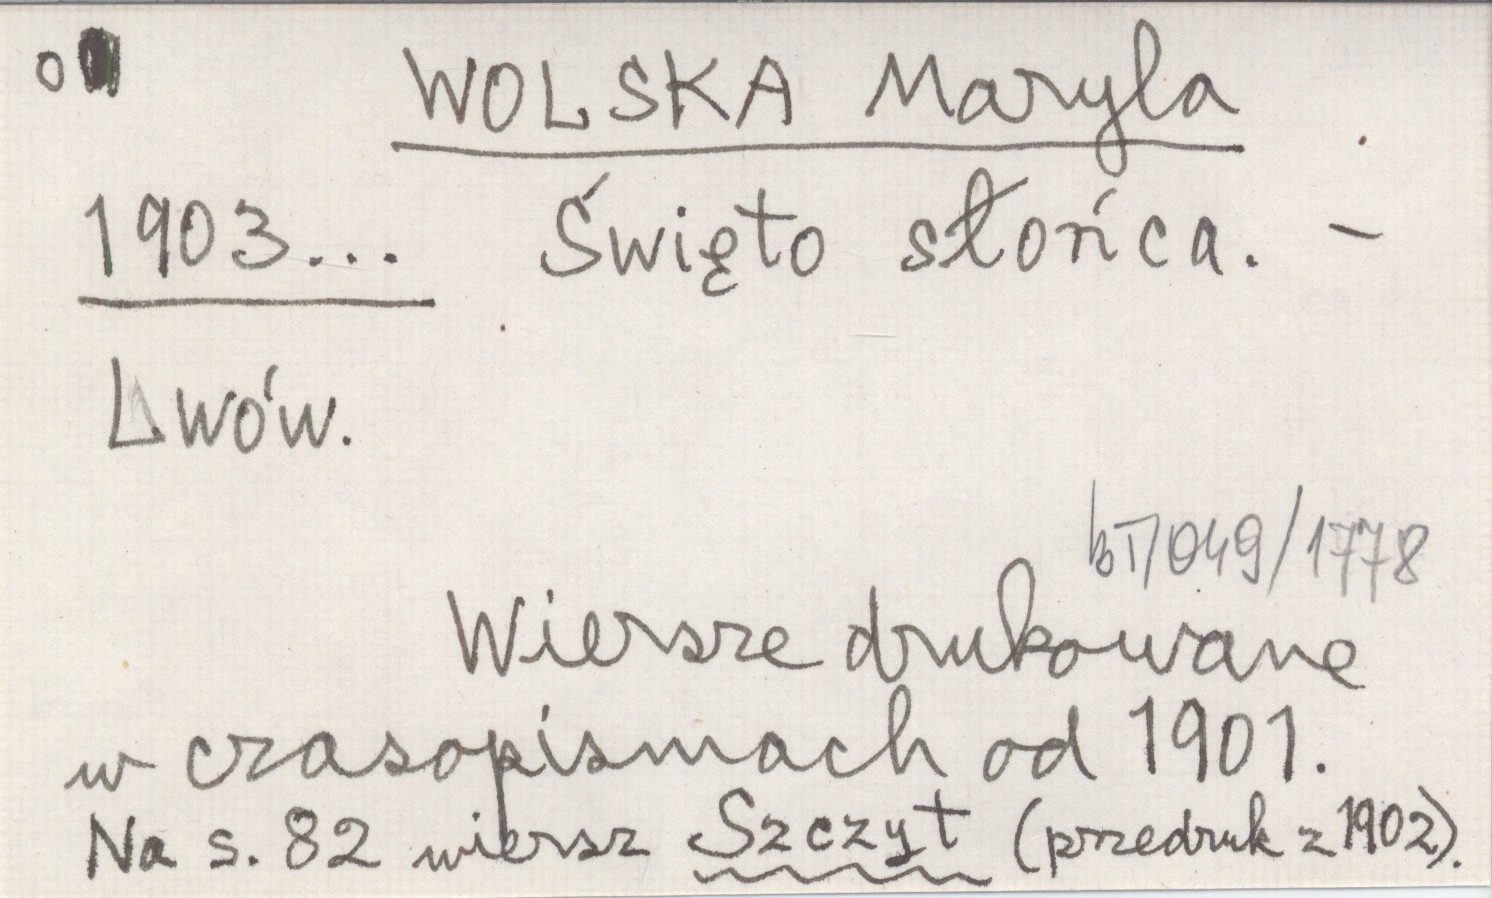 o
WOLSKA Maryla
1903... Święto słońca. –
Lwów.
bT/049/1778
Wiersze drukowane
w czasopismach od 1901.
Na s. 82 wiersz Szczyt (przedruk z 1902).